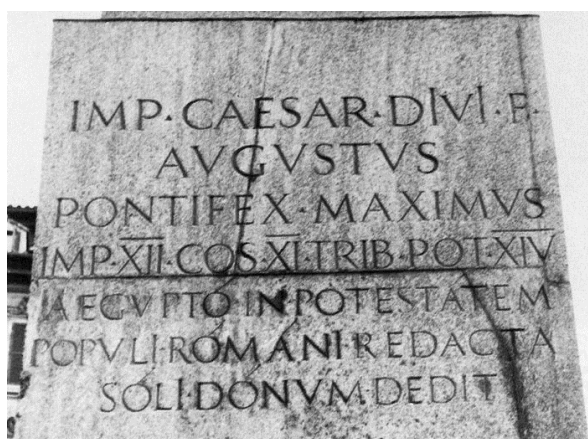 IMP·CAESAR·DIVI·F·
AVGVSTVS
PONTIFEX·MAXIMVS
IMP·XII·COS·XI·TRIB·POT·XIV
AEGVPTO·IN·POTESTATEM
POPVLI·ROMANI·REDACTA
SOLI·DONVM·DEDIT